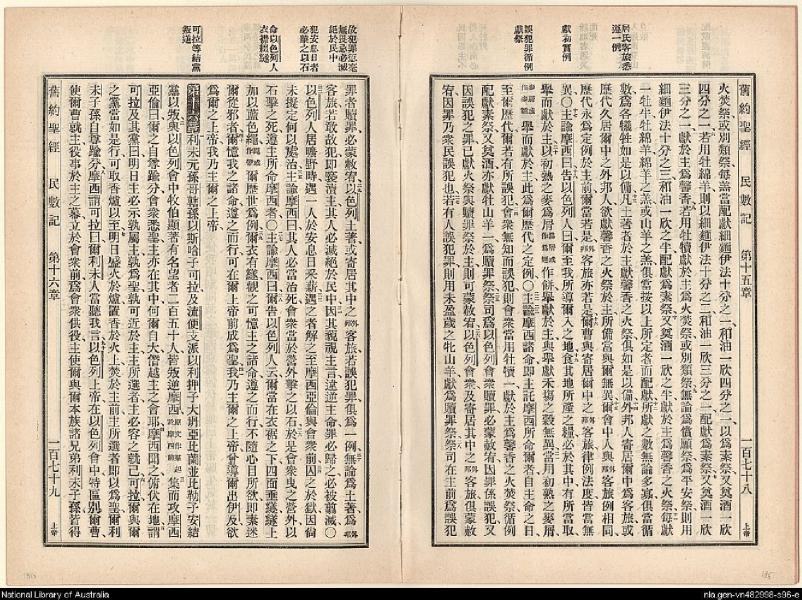 居民客旅悉
遵一例
獻初實例
誤犯罪循例
獻祭
舊約聖經 民數記 第十五章 一百七十八 上帝
火焚祭或別類祭每羔當配獻細麵伊法十分之一和油一欣四分之一以爲素祭又奠酒一欣
四分之一若用牡綿羊則以細麵伊法十分之二和油一欣三分之一配獻爲素祭又奠酒一欣
三分之一獻於主爲馨香若用牡犢獻於主爲火焚祭或別類祭無論爲償願祭爲平安祭則用
細麵伊法十分之三和油一欣之半配獻爲素祭又奠酒一欣之半獻於主爲馨香之火祭每獻
一牡牛牡綿羊綿羊之羔或山羊之羔俱當按以上所定者而配獻所獻之數無論多寡俱當循
數爲各犧牲如是以備凡土著者於主獻馨香之火祭俱如是以備外邦人寄居爾中爲客旅或
歷代久居爾中之外邦人欲獻馨香之火祭於主所備當與爾無異爾會中人與客旅例相同
歷代永爲定例於主前爾當若是客旅亦若是爾曹與寄居爾中之客旅律例法度皆當無
異〇主諭摩西曰告以色列人曰爾至我所導爾入之地食其地所產之糧必於其中有所當取
舉而獻於主以初熟之麥爲屑作餅舉獻於主與舉獻禾場之穀無異當用初熟之麥屑
舉而獻於主此爲爾歷代之定例〇主諭摩西之諸命即主託摩西所命爾者自主命之日
至爾歷代爾若有所誤犯會衆無知而誤犯則會衆當用牡犢一獻於主爲馨香之火焚祭循例
配獻素祭又奠酒亦獻牡山羊一爲贖罪祭祭司爲以色列會衆贖罪必蒙赦宥因罪係誤犯又
因誤犯之罪已獻火祭與贖罪祭於主則可蒙赦宥以色列會衆及寄居其中之客旅俱蒙赦
宥因誤犯乃衆民誤犯也若有人誤犯罪則用未盈歲之牝山羊獻爲贖罪祭祭司在主前爲誤犯
故犯罪逞毫
無畏忌必滅
絕於民中
犯安息日者
必擊之以石
命以色列人
衣裾綴繸
可拉等結黨
叛逆
罪者贖罪必蒙赦宥以色列土著或寄居其中之客旅若誤犯罪俱爲一例無論爲土著爲
客旅若敢故犯即褻瀆主其人必滅絕於民中因其藐視主言違逆主命罪必歸之必被翦滅〇
以色列人居曠野時遇一人於安息日釆薪遇之者解之至摩西亞倫與會衆前囚之於獄因尚
未擬定何以處治主諭摩西曰其人必當治死會衆當於營外擊之以石於是會衆曳之營外以
石擊之死遵主所命摩西者〇主諭摩西曰爾告以色列人云爾當在衣裾之下四面垂綴繸上
加以藍色繩爾歷世爲例爾衣有繸觀之可憶主之諸命遵之而行不隨心目所欲即素迷
爾從邪者爾憶我之諸命遵之而行可在爾上帝前成爲聖我乃主爾之上帝曾導爾出伊及欲
爲爾之上帝我乃主爾之上帝
第十六章利未元孫哥轄孫以斯哈子可拉及流便支派以利押子大坍亞比蘭並比勒子安結
黨以叛與以色列會中牧伯顯著有名望者二百五十人皆叛逆摩西集而攻摩西
亞倫曰爾之自尊踰分會衆悉聖主亦在其中何爾自大富越主之會耶摩西聞之俯伏在地謂
可拉及其黨曰明日主必示孰屬主孰爲聖孰可近於主主所選者主必容之就己可拉爾與爾
之黨當如是行可取香爐以至明日盛火於爐置香於火上焚於主前主所選者即以爲聖爾利
未子孫自尊踰分摩西謂可拉曰爾利未人當聽我言以色列上帝在以色列會中特區別爾曹
使爾曹就主役事於主之幕立於會衆前爲會衆供役主使爾與爾本族諸兄弟利未子孫皆得
舊約聖經 民數記 第十六章 一百七十九 上帝
National Library of Australia
nla.gen-vn482998-s96-e